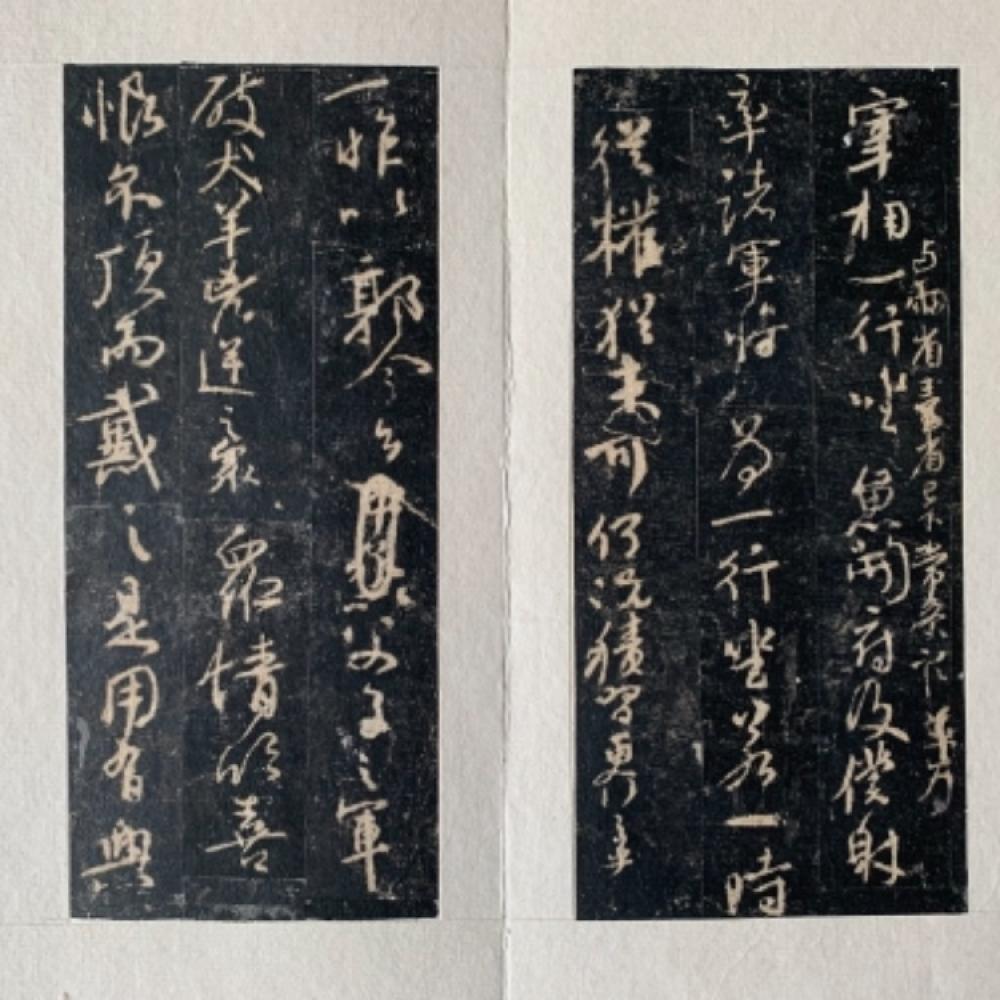 宰相一行坐魚開府及僕射
与兩省臺省已下常參官並為
率諸軍將為一行坐若一時
從權猶未可何況積習更行之乎
一昨以郭令公以父子之軍
破犬羊兇逆之眾眾情欣喜
恨不頂而戴之是用有興